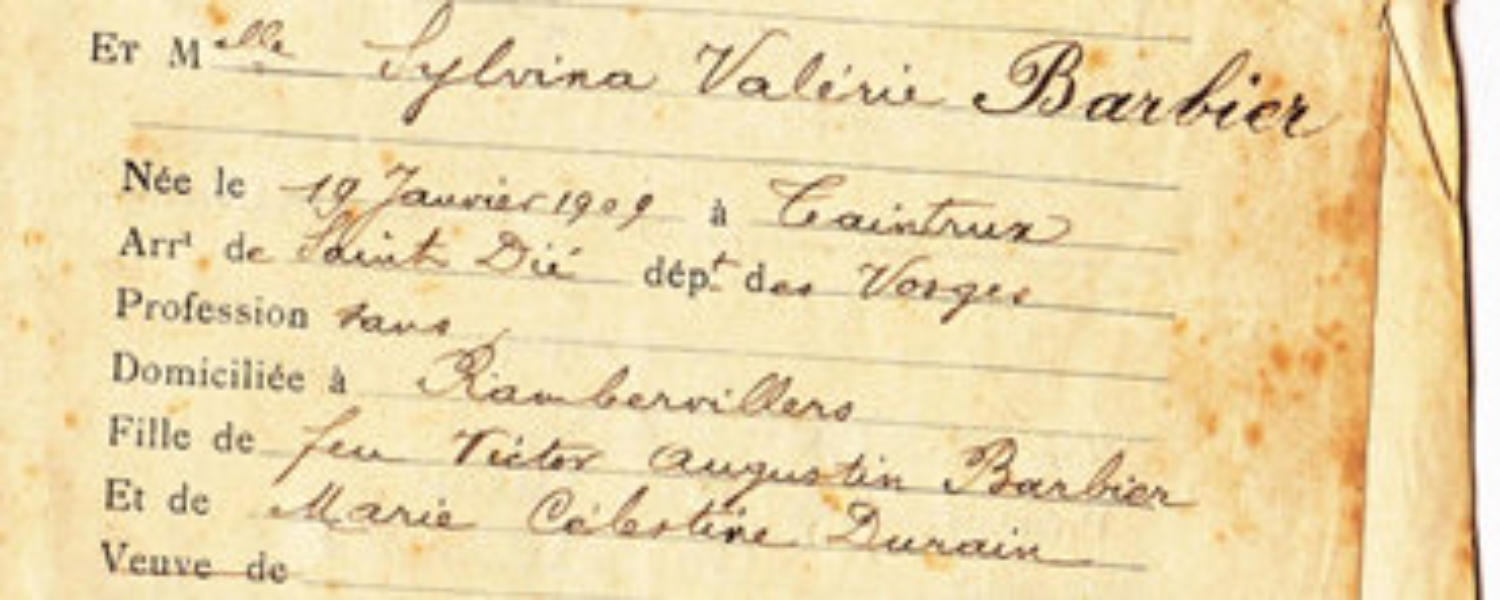 Et Mlle Sylvina Valérie Barbier
Née le 19 Janvier 1909 à Taintrux
Arrt de Saint Dié dépt. des Vosges
Profession sans
Domiciliée à Rambervillers
Fille de feu Victor Augustin Barbier
Et de Marie Célestine Durain
Veuve de